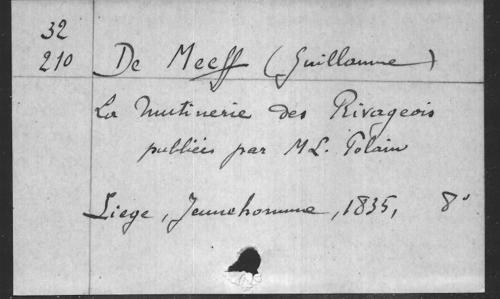 32
210
De Meeff (Guillaume)
La Mutinerie des Rivageois
publiées par ML. Polain
Liege, Jeunehomme, 1835, 8°